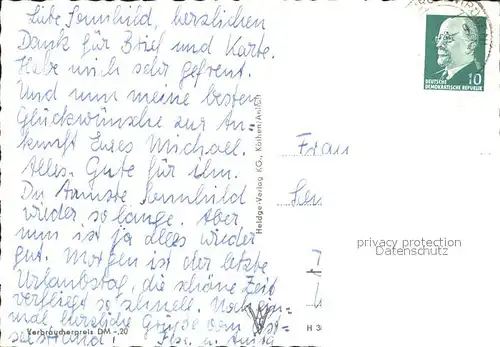 Liebe Sennhild, herzlichen
Dank für Brief und Karte.
Habe mich sehr gefreut.
Und nun meine besten
Glückwünsche zur An-
kunft Eures Michael.
Alles Gute für ihn.
Du Ärmste Sennhild
wieder so lange. Aber
nun ist ja alles wieder
gut. Morgen ist der letzte
Urlaubstag, die schöne Zeit
verfliegt so schnell. Noch ein-
mal herzliche Grüße vom Ost-
seestrand! u. Anita
Verbraucherpreis DM -,20
Heldge-Verlag KG., Köthen/Anhalt
10
DEUTSCHE
DEMOKRATISCHE REPUBLIK
Frau
privacy protection
Datenschutz
H 3